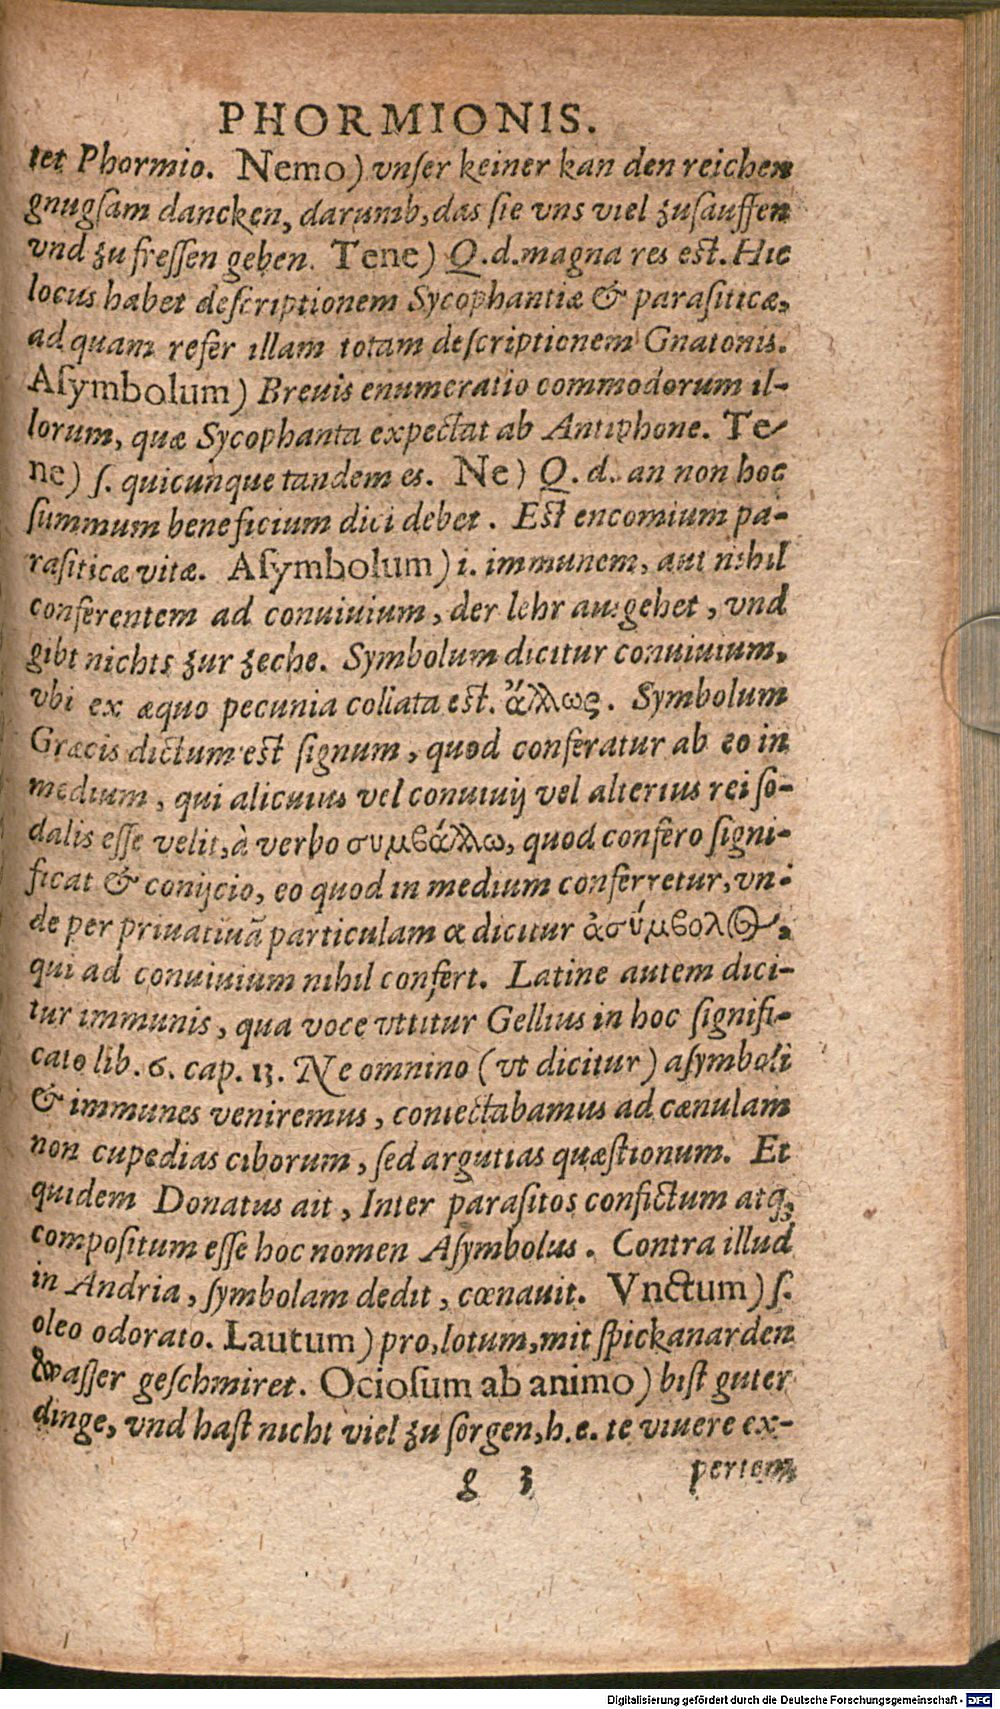 PHORMIONIS.
tet Phormio. Nemo) vnſer keiner kan den reichen
gnugſam dancken, darumb, das ſie vns viel zuſauffen
vnd zu freſſen geben. Tene) Q.d. magna res est. Hic
locus habet deſcriptionem Sycophantiæ & paraſiticæ,
ad quam refer illam totam deſcriptionem Gnatonis.
Aſymbolum) Breuis enumeratio commodorum il-
lorum, quæ Sycophanta expectat ab Antiphone. Te-
ne) ſ. quicunque tandem es. Ne) Q. d. an non hoc
ſummum beneficium dici debet. Est encomium pa-
raſiticæ vitæ. Aſymbolum) i. immunem, aut nihil
conferentem ad conuiuium, der lehr ausgehet, vnd
gibt nichts zur zeche. Symbolum dicitur conuiuium,
vbi ex æquo pecunia collata est. ἄλλως. Symbolum
Græcis dictum est ſignum, quod conferatur ab eo in
medium, qui alicuius vel conuiuij vel alterius rei ſo-
dalis eſſe velit, à verbo συμβάλλω, quod confero ſigni-
ficat & conijcio, eo quod in medium conferretur, vn-
de per priuatiuã particulam α dicitur ἀσύμβολος,
qui ad conuiuium nihil confert. Latine autem dici-
tur immunis, qua voce vtitur Gellius in hoc ſignifi-
cato lib. 6. cap. 13. Ne omnino (vt dicitur) aſymboli
& immunes veniremus, coniectabamus ad cænulam
non cupedias ciborum, ſed argutias quæſtionum. Et
quidem Donatus ait, Inter paraſitos confictum atq;
compoſitum eſſe hoc nomen Aſymbolus. Contra illud
in Andria, ſymbolam dedit, cœnauit. Vnctum) ſ.
oleo odorato. Lautum) pro, lotum, mit ſpickanarden
waſſer geſchmiret. Ocioſum ab animo) biſt guter
dinge, vnd haſt nicht viel zu ſorgen, h.e. te viuere ex-
g 3 pertem
Digitalisierung gefördert durch die Deutsche Forschungsgemeinschaft - DFG